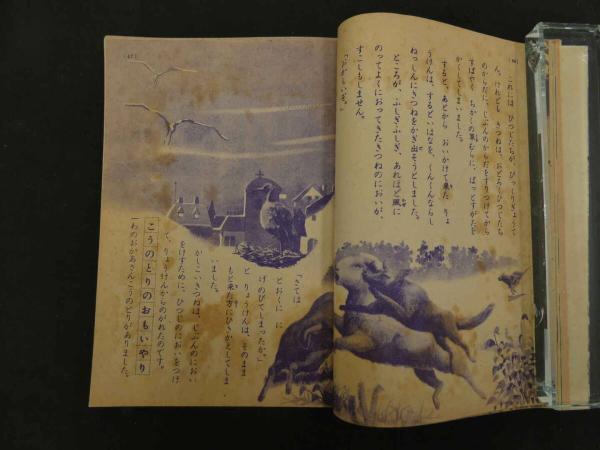 (46)
これには ひつじたちが、びっくりぎょうて
ん。けれども きつねは、おどろくひつじたち
のからだに、じぶんのからだをすりつけてから
すばやく ちかくの草むらに、ぱっとすがたを
かくしてしまいました。
すると、あとから おいかけて来た りょ
うけんは、するどいはなを、くんくんならし
ねっしんにきつねをかぎ出そうとしました。
ところが、ふしぎふしぎ、あれほど風に
のってよくにおってきたきつねのにおいが、
すこしもしません。
「おかしいぞ。」
(47)
「さては
とおくに に
げのびてしまったか。」
と りょうけんは、そのまま
もと来た方にひきかえしてしま
いました。
かしこいきつねは、じぶんのにおい
をけすために、ひつじのにおいをつけ
て、りょうけんからのがれたのです。
こうのとりのおもいやり
一わのおかあさんこうのとりがありました。